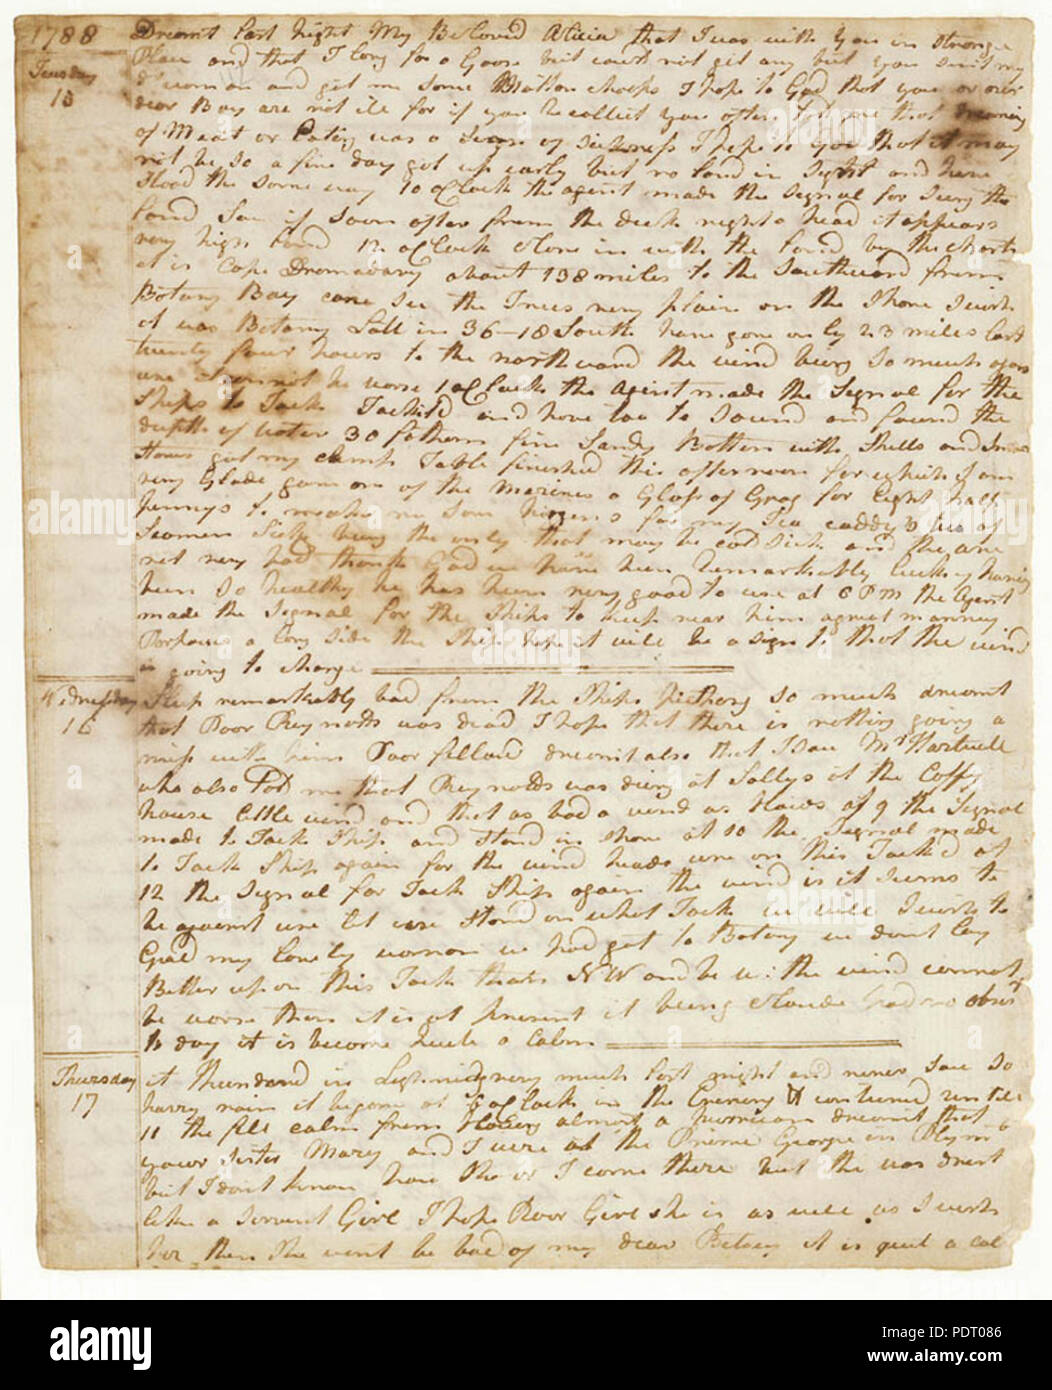 1788
Dreamt last night My Beloved Alicia that I was with you in Strange
Tuesday
15
Place and that I long for a Goose but coud not get any but you sent my
Woman and get me some Mutton Choops I hope to God that you or our
dear Boy are not ill for if you Recollect you often told me that dreaming
of Meat or Eating was a Sign of Sickness I hope to God that it may
not be so a fine day got up early but no land in Sight and have
Stood the same way 10 oClock the agent made the Signal for Seing the
land Saw it Soon after from the deck right a head it appears
very high land 12 oClock Close in with the land by the charts
it is Cape Dromadary about 138 miles to the Southward from
Botany Bay cane See the Trees very plain on the Shore I wish
it was Botany Latt in 36-18 South have gone only 23 miles last
twenty four hours to the northward the wind being So much against
use it cannot be worse 1 oClock the Agent made the Signal for the
Ships to Tack Tackt'd and hove too to Sound and found the
depth of water 30 fathom fine Sandy Bottom with Shells and Small
Stones got my camp Table finished this afternoon for which I am
very Glade gave one of the Marines a Glass of Grog for Eight half
pennys to make me Som hinges for my Tea caddy two of
Seamen Sick being the only that may be cald Sick and they are
not very bad thank God we have been Remarkably lucky having
been So healthy he has been very good to use at 6 PM the Agent
made the Signal for the Ships to keep near him a great maney
Porpouses a long Side the Ship hope it will be a sign to that the wind
is going to change
Wednesday
16
Slep remarkably bad from the Ships pitching so much dreamt
that Poor Reynolds was dead I hope that there is nothing going a
miss with him Poor fellow dreamt also that I Saw Mr Hartwell
who also Told me that Reynolds was dieing at Sallys at the Coffy
house little wind and that as bad a wind as blows at 9 the Signal
made to Tack Ship and Stand in Shore at 10 the Signal made
to Tack Ship again for the wind heads use on this Tack & at
12 the Signal for Tack Ship again the wind is it seems to
be against use let use Stand on what Tack we will I wish to
God my lovely woman we had got to Botany we dont lay
Better up on this Tack than NW and be W: the wind cannot
be worse then it is at present it being Cloude had no obsert
to day it is become quite a Calm
Thursday
17
it Thunderd in Lightnidg very much last night and never Saw So
havey rain it began at oClock in the Evening & contineud untill
11 the fell calm from Blowing almost a hurricam dreamt that
your Sister Mary and I were at the Prince George in Plymo
but I dont know how She or I came there but she was drest
like a Servant Girl I hope Poor Girl she is as well as I wish
her then She wont be bad of my dear Betsey it is quit a cal
alamy
Image ID: PDT086
www.alamy.com